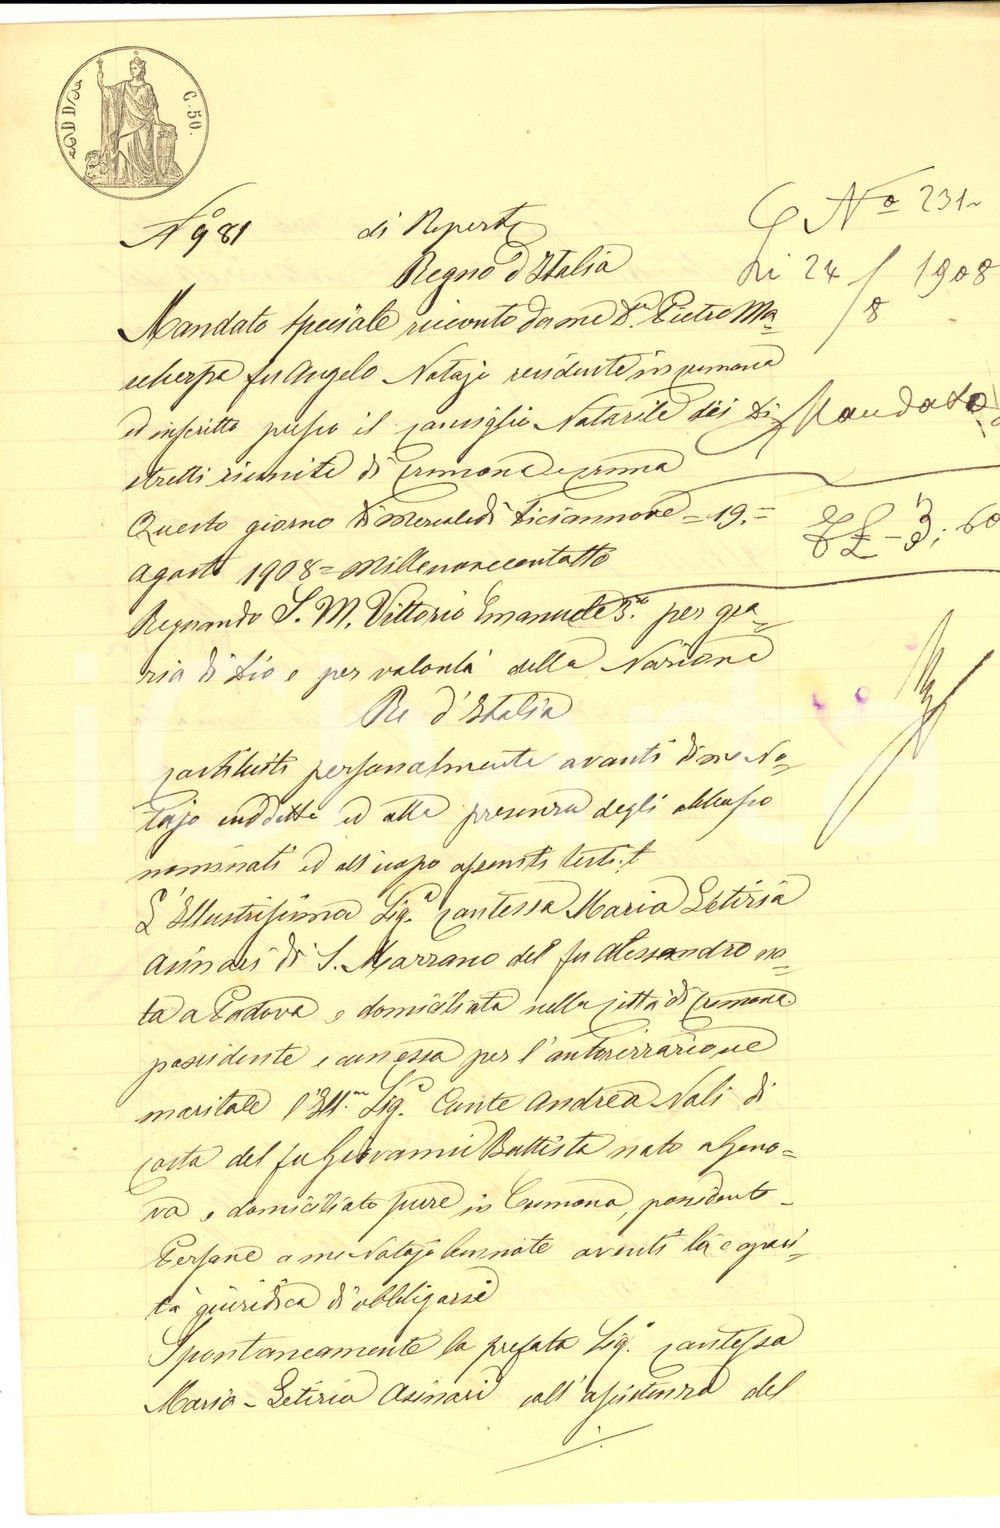 C. 50.
N° 981 di Repert.
N° 231
Li 24/8 1908
Regno d'Italia
Mandato speciale ricevuto da me Dr. Pietro Ma=
scherpa fu Angelo Notajo residente in Cremona
ed inscritto presso il Consiglio Notarile dei Di=
Mandato
stretti riuniti di Cremona e Crema
Questo giorno di Mercoledì diciannove = 19. =
£ - 3, 60
Agosto 1908 = Millenovecentotto
Regnando S. M. Vittorio Emanuele 3° per gra=
zia di Dio e per volontà della Nazione
Re d'Italia
Costituiti personalmente avanti di me No=
tajo suddetto ed alla presenza degli abbasso
nominati ed all'uopo assunti testi:
L'Illustrissima Sig.a Contessa Maria Letizia
Asinari di S. Marzano del fu Alessandro na=
ta a Padova e domiciliata nella città di Cremona
possidente e con essa per l'autorizzazione
maritale l'Ill.mo Sig. Conte Andrea Nali di
Costa del fu Giovanni Battista nato a Geno=
va e domiciliato pure in Cremona, possidente -
Persone a me Notajo cennate aventi la capaci=
tà giuridica di obbligarsi
Spontaneamente la prefata Sig.a Contessa
Maria - Letizia Asinari coll'assistenza del